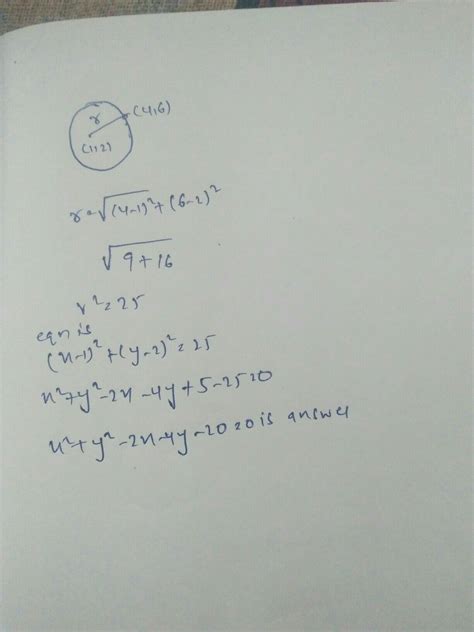 r
(4,6)
(1,2)
r=√(4-1)²+(6-2)²
√9+16
r²=25
eqn is
(x-1)²+(y-2)²=25
x²+y²-2x-4y+5-25=0
x²+y²-2x-4y-20=0 is answer